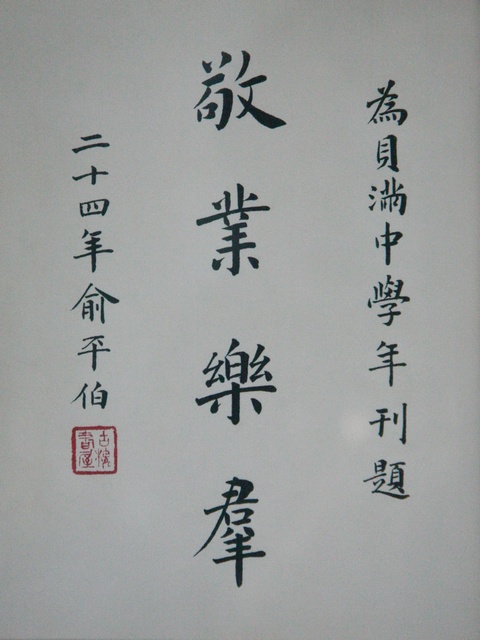 為貝滿中學年刊題
敬業樂羣
二十四年俞平伯